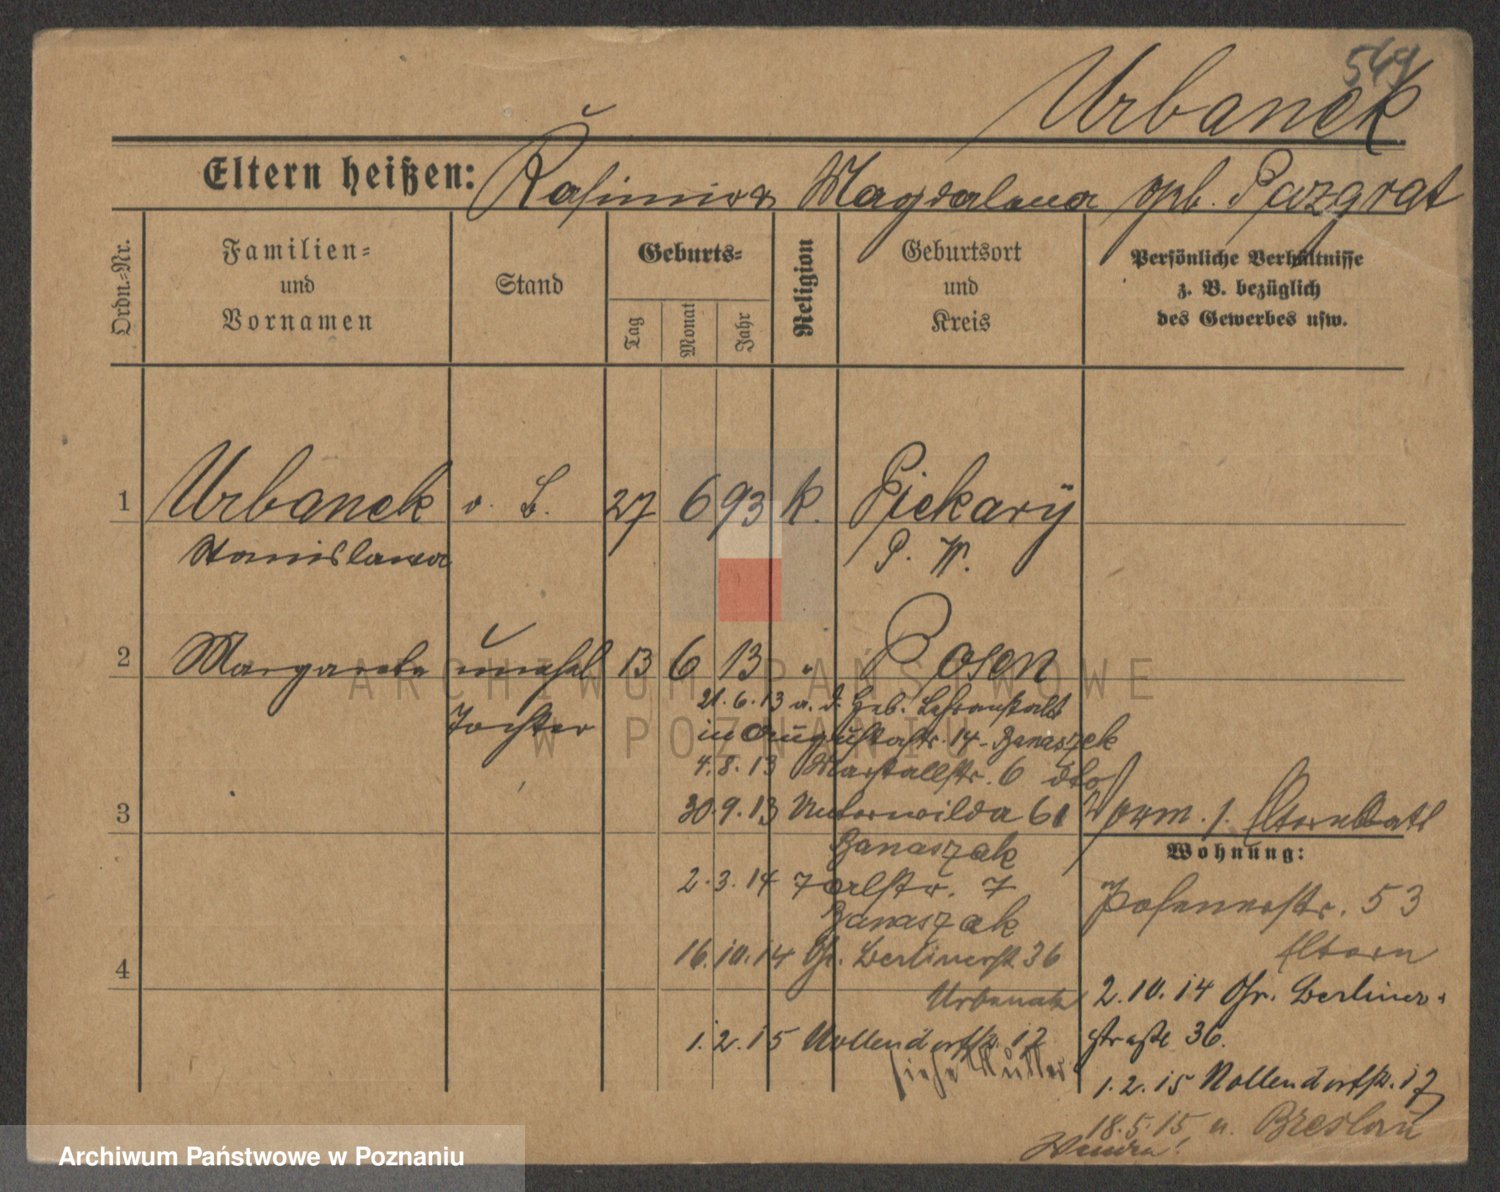 549
Urbanek
Eltern heißen: Kasimir u Magdalena geb. Pazgrat
Ordn.-Nr.
Familien-
und
Vornamen
Stand
Geburts-
Tag
Monat
Jahr
Religion
Geburtsort
und
Kreis
Persönliche Verhältnisse
z. B. bezüglich
des Gewerbes usw.
1 Urbanek o. B. 27 6 93 k. Piekary
Stanislawa P. W.
2 Margarete unehel 13 6 13 " Posen
Tochter
21.6.13 a. d. Heb. Lehranstalt
in Augustastr. 14 - Banaszek
4.8.13 Marstallstr. 6 dto
3 30.9.13 Unterwilda 61
Banaszak
2.3.14 7
Banaszak
4 16.10.14 Gr. Berlinerst 36
Urbanek
1.2.15 Nollendorfstr. 17
siehe Mutter
Wohnung:
Posenerstr. 53
Eltern
2.10.14 Gr. Berliner-
straße 36.
1.2.15 Nollendorfstr. 17
18.5.15 n. Breslau
ARCHIWUM PAŃSTWOWE
W POZNANIU
Archiwum Państwowe w Poznaniu